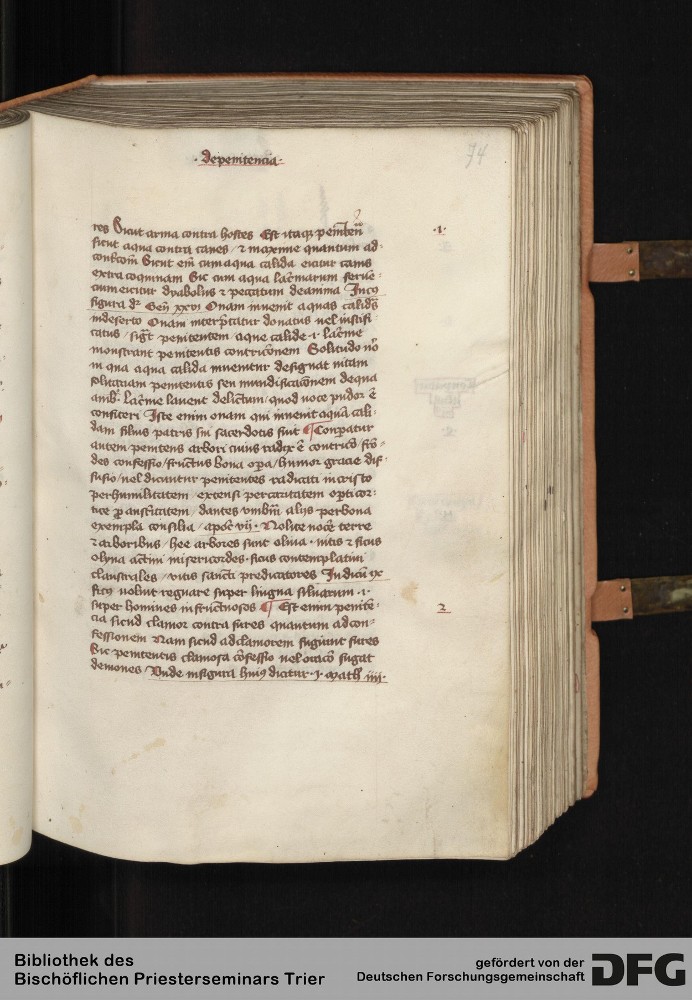 · de penitencia ·
74
res Sicut arma contra hostes Est itaqꝫ
sicut aqua contra canes / ⁊ maxime quantum ad
Sicut em̄ cum aqua calida eicitur canis
extra coquinam Sic cum aqua lac̄marum
cum eicitur dyabolus ⁊ peccatum de anima
figura dr̄ Gen̄ xxvj Onam inuenit aquas calidas
in deserto Onam donatus uel
catus / penitentem aque calide .i. lac̄me
monstrant penitentis contric̄onem Solitudo
in qua aqua calida inuenitur designat uitam
solitariam penitentis seu mundificac̄onem de qua
amb̄. Lac̄me lauent delictum / quod uoce pudor ē
confiteri Iste enim onam qui inuenit aquā cali-
dam filius patris sui sacerdotis fuit ¶ Conp̄atur
autem penitens arbori cuius radix ē
des confessio / fructus bona op̄a / humor gracie dif-
fusio / uel dicuntur penitentes radicati in cristo
per humilitatem / extensi per caritatem
dantes vmbrā alijs per bona
exempla consilia / apoc̄ vij . Nolite noce terre
⁊ arboribus / hee arbores sunt oliua . uitis ⁊ ficus
olyua actiui misericordes . ficus contemplatiui
claustrales / vitis sancti predicatores
ficꝯ noluit regnare super lingna siluarum .i.
super homines infructuosos ¶ Est enim penite-
cia sicud clamor contra fures quantum ad con-
fessionem Nam sicud ad clamorem fugiunt fures
Sic penitentis clamosa cōfessio uel orac̄o fugat
demones / Vnde in figura huiꝯ dicitur .i. Math iiij.
.1.
2
Bibliothek des
Bischöflichen Priesterseminars Trier
gefördert von der
Deutschen Forschungsgemeinschaft
DFG